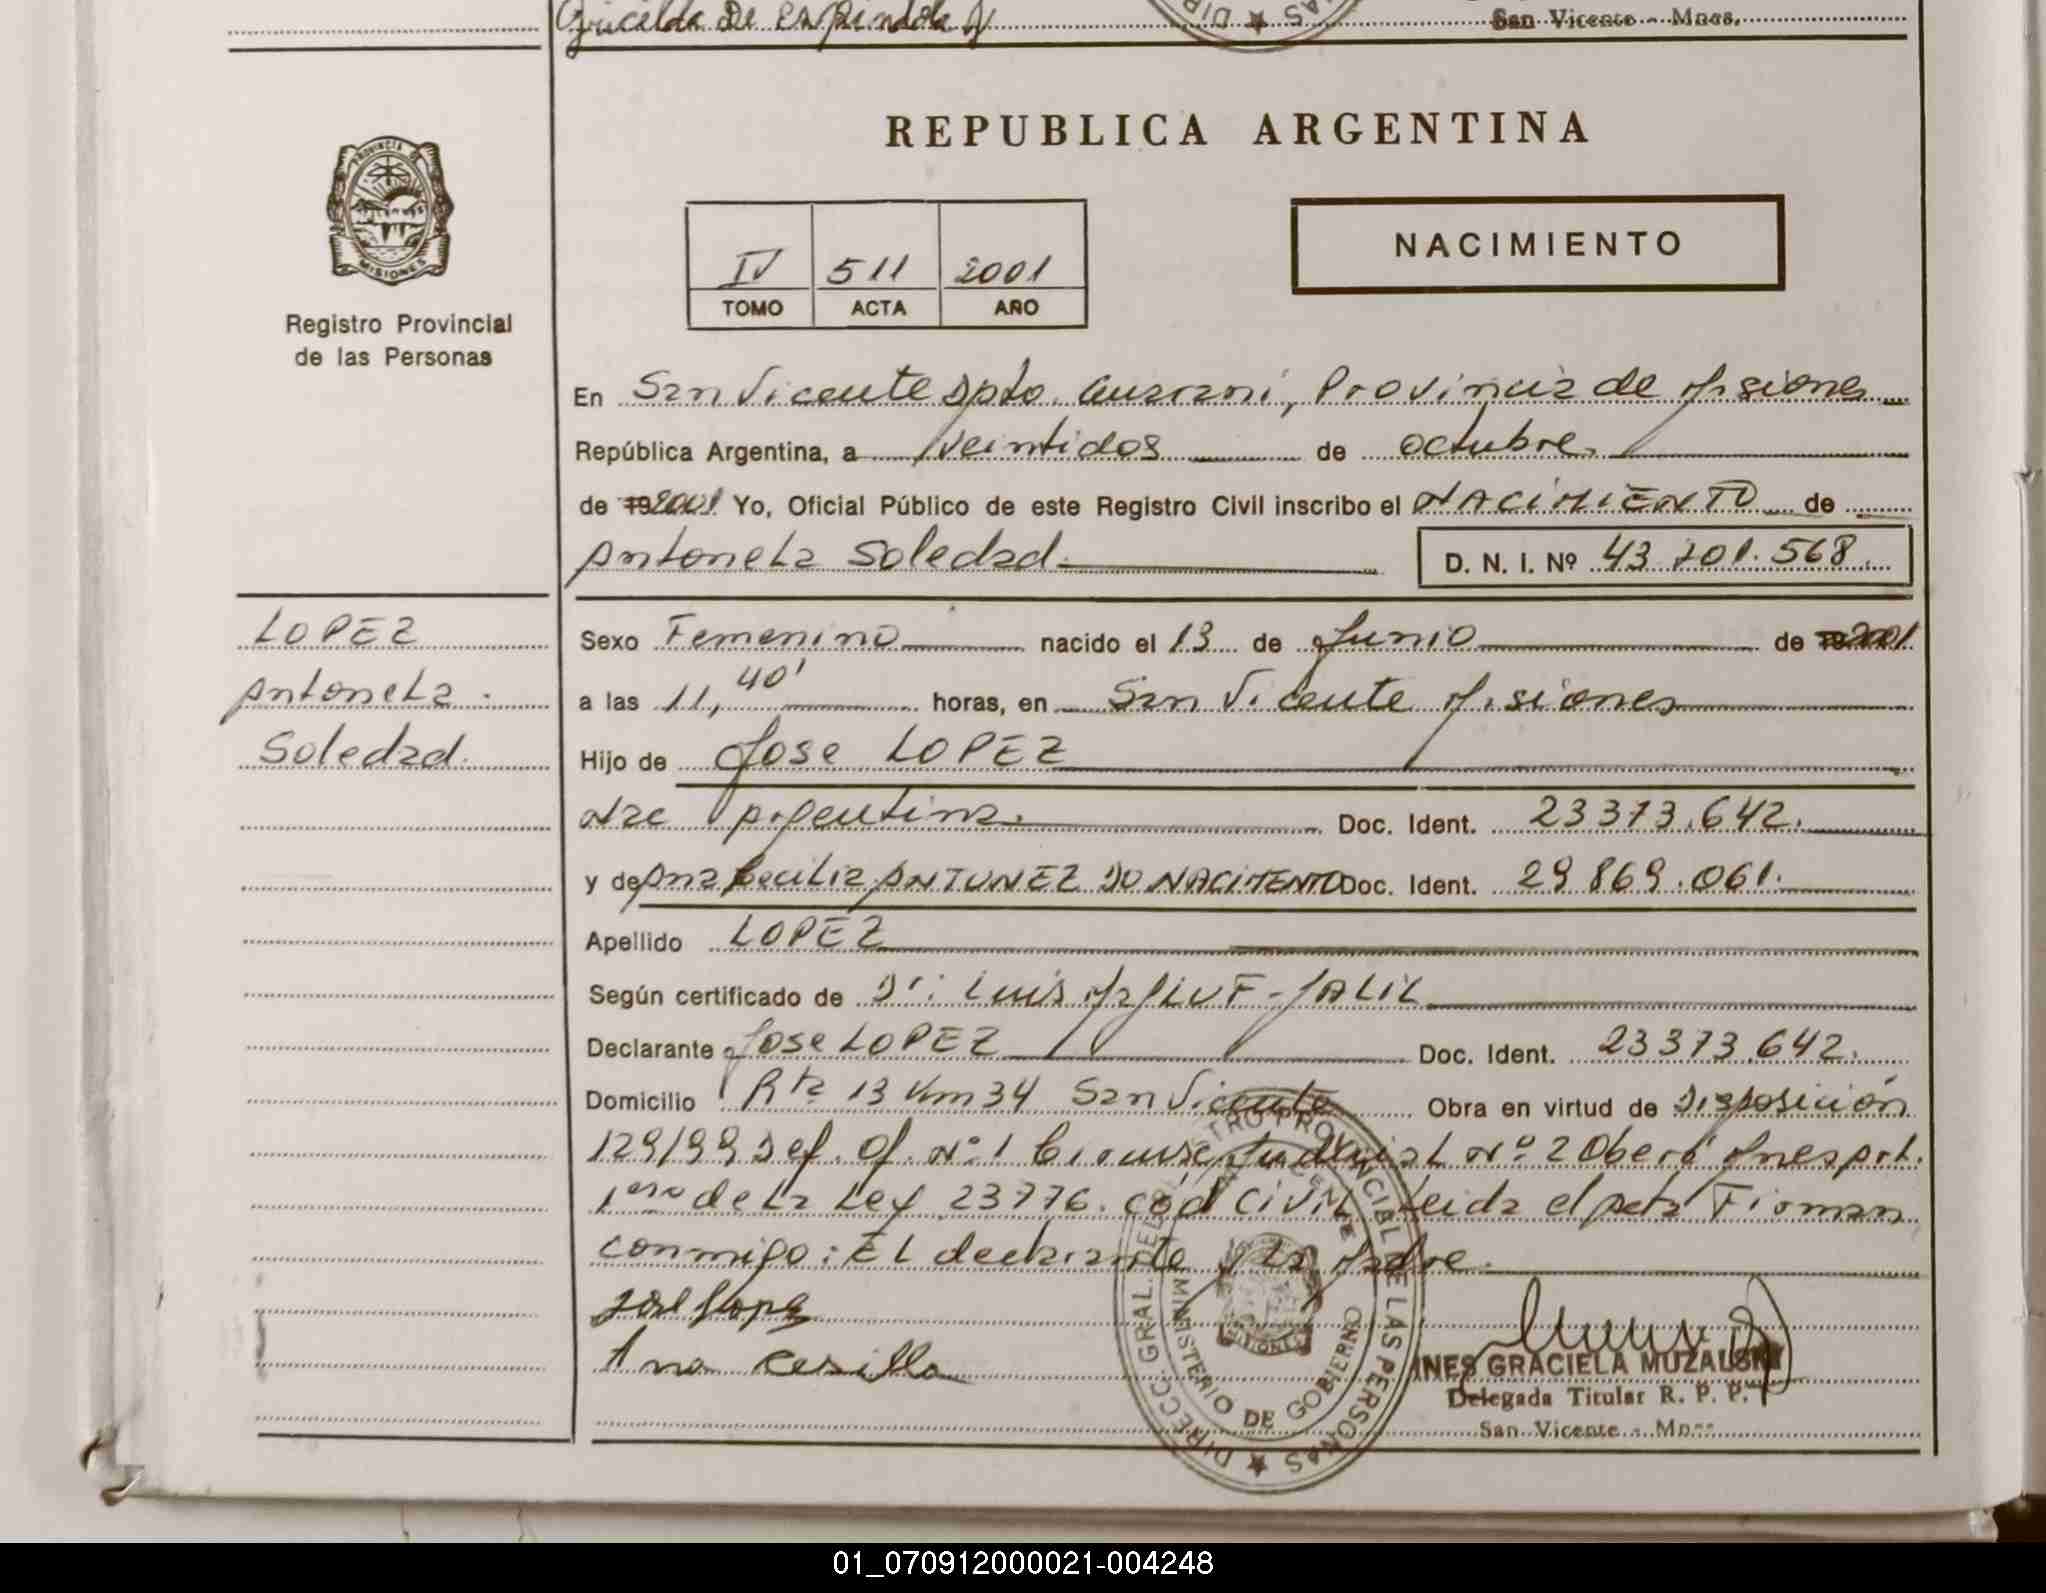 Gricelda De Espindola
San Vicente - Mnes.
REPUBLICA ARGENTINA
PROVINCIA DE
MISIONES
Registro Provincial
de las Personas
IV 511 2001
TOMO ACTA AÑO
NACIMIENTO
En San Vicente Dpto. Guarani, Provincia de Misiones
República Argentina, a veintidos de octubre
de 19 2001 Yo, Oficial Público de este Registro Civil inscribo el NACIMIENTO de
Antonela Soledad D. N. I. Nº 43.201.568.
LOPEZ
Antonela
Soledad.
Sexo Femenino nacido el 13 de Junio de 19 2001
a las 11, 40' horas, en San Vicente Misiones
Hijo de Jose LOPEZ
Nac Argentina. Doc. Ident. 23373.642.
y de Ana Cecilia ANTUNEZ DO NACIMENTO Doc. Ident. 29.869.061.
Apellido LOPEZ
Según certificado de Dr: Luis MALLUF - JALIL
Declarante Jose LOPEZ Doc. Ident. 23373.642.
Domicilio Rta 13 Km 34 San Vicente Obra en virtud de Disposición
129/99 Def. Of. Nº 1 Circunsc. Judicial Nº 2 Oberá Mnes
de la Ley 23776. Cód Civil Leida el Acta Firman
conmigo: El declarante y la Madre.
Jose Lopez
Ana Cesilla
DIRECC. GRAL. DEL REGISTRO PROVINCIAL DE LAS PERSONAS
SAN VICENTE
MINISTERIO DE GOBIERNO
MISIONES
INES GRACIELA MUZALSKY
Delegada Titular R. P. P.
San Vicente - Mnes
01_070912000021-004248